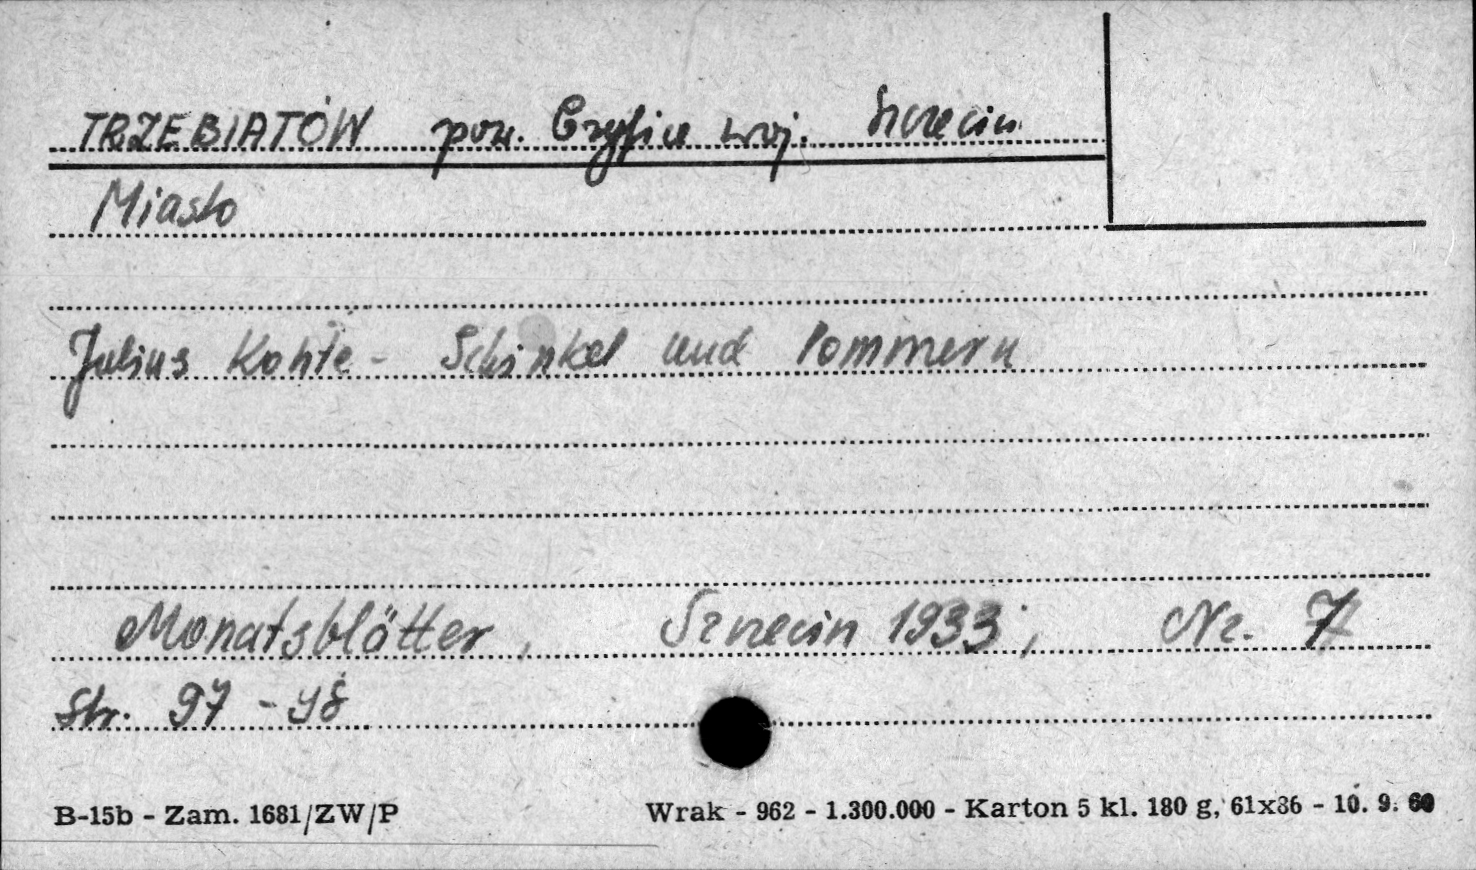 TRZEBIATÓW pow. Gryfice woj. Szczecin
Miasto
Julius Kohte - Schinkel und Pommern
Monatsblätter, Szczecin 1933, Nr. 7
Str. 97 - 98
B-15b - Zam. 1681/ZW/P Wrak - 962 - 1.300.000 - Karton 5 kl. 180 g, 61x86 - 10. 9. 60